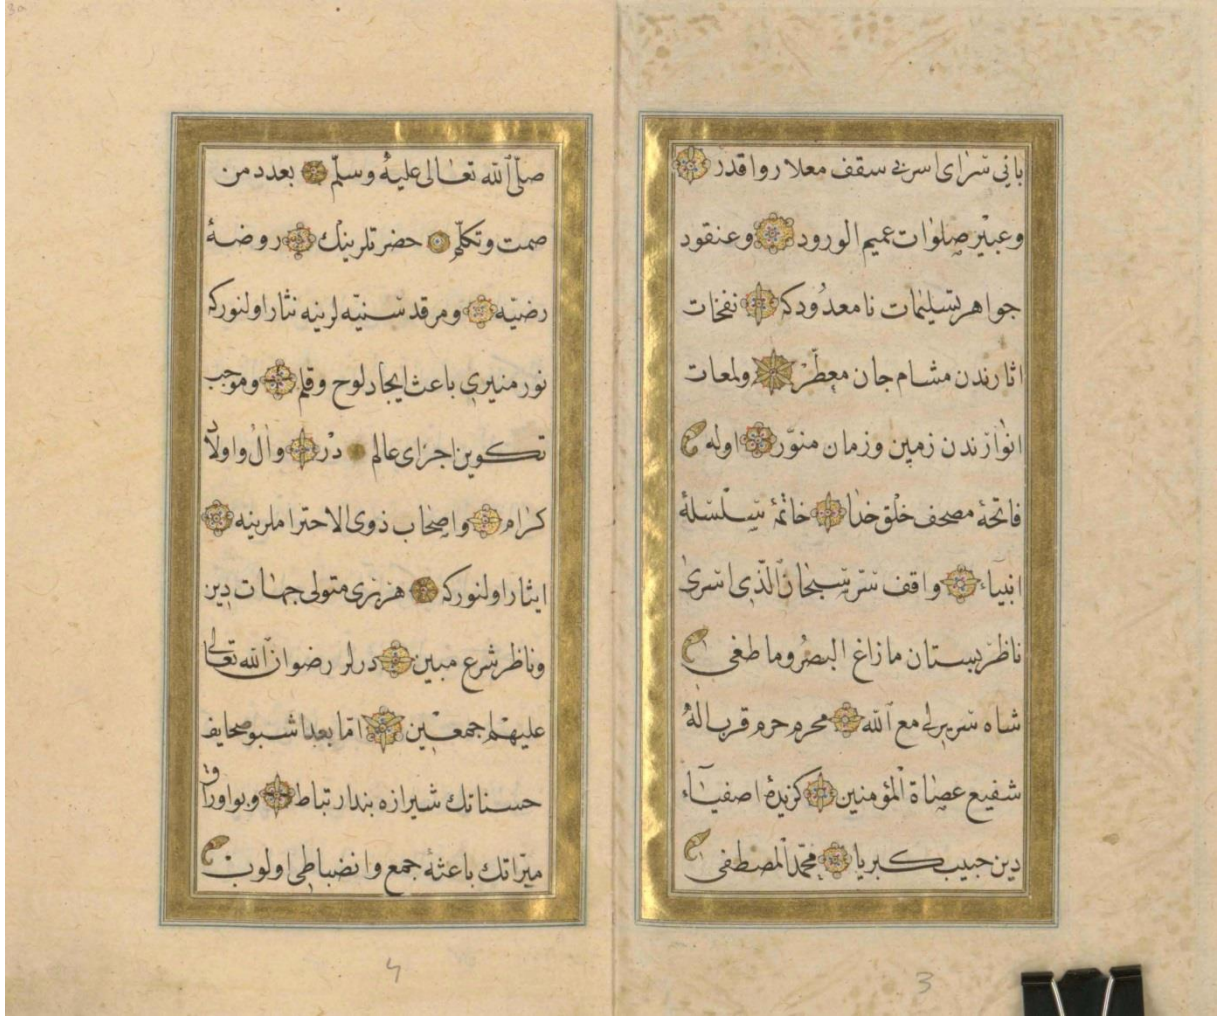 بانی سرای اسری سقف معلا رواقدر
وعبیر صلوات عمیم الورود وعنقود
جواهر تسلیمات نامعدودکه نفحات
اثارندن مشام جان معطر ولمعات
انوارندن زمین وزمان منور اوله
فاتحۀ مصحف خلق خدا خاتمۀ سلسلۀ
انبیاء واقف سر سبحان الذی اسری
ناظر بستان مازاغ البصر وما طغی
شاه سریر لی مع الله محرم حرم قرب اله
شفیع عصاة المؤمنین کزیدۀ اصفیاء
دین حبیب کبریا محمد المصطفی
3
صلی الله تعالی علیه وسلم بعدد من
صمت وتکلم حضرتلرینك روضۀ
رضیه ومرقد سنیه لرینه نثار اولنورکه
نور منیری باعث ایجاد لوح وقلم وموجب
تکوین اجزای عالم در وآل واولاد
کرام واصحاب ذوی الاحترام لرینه
ایثار اولنورکه هر بری متولی جهات دین
وناظر شرع مبین درلر رضوان الله تعالی
علیهم اجمعین اما بعد اشبو صحایف
حسناتك شیرازه بند ارتباط وبو اوراق
میراتك باعثۀ جمع وانضباطی اولوب
4